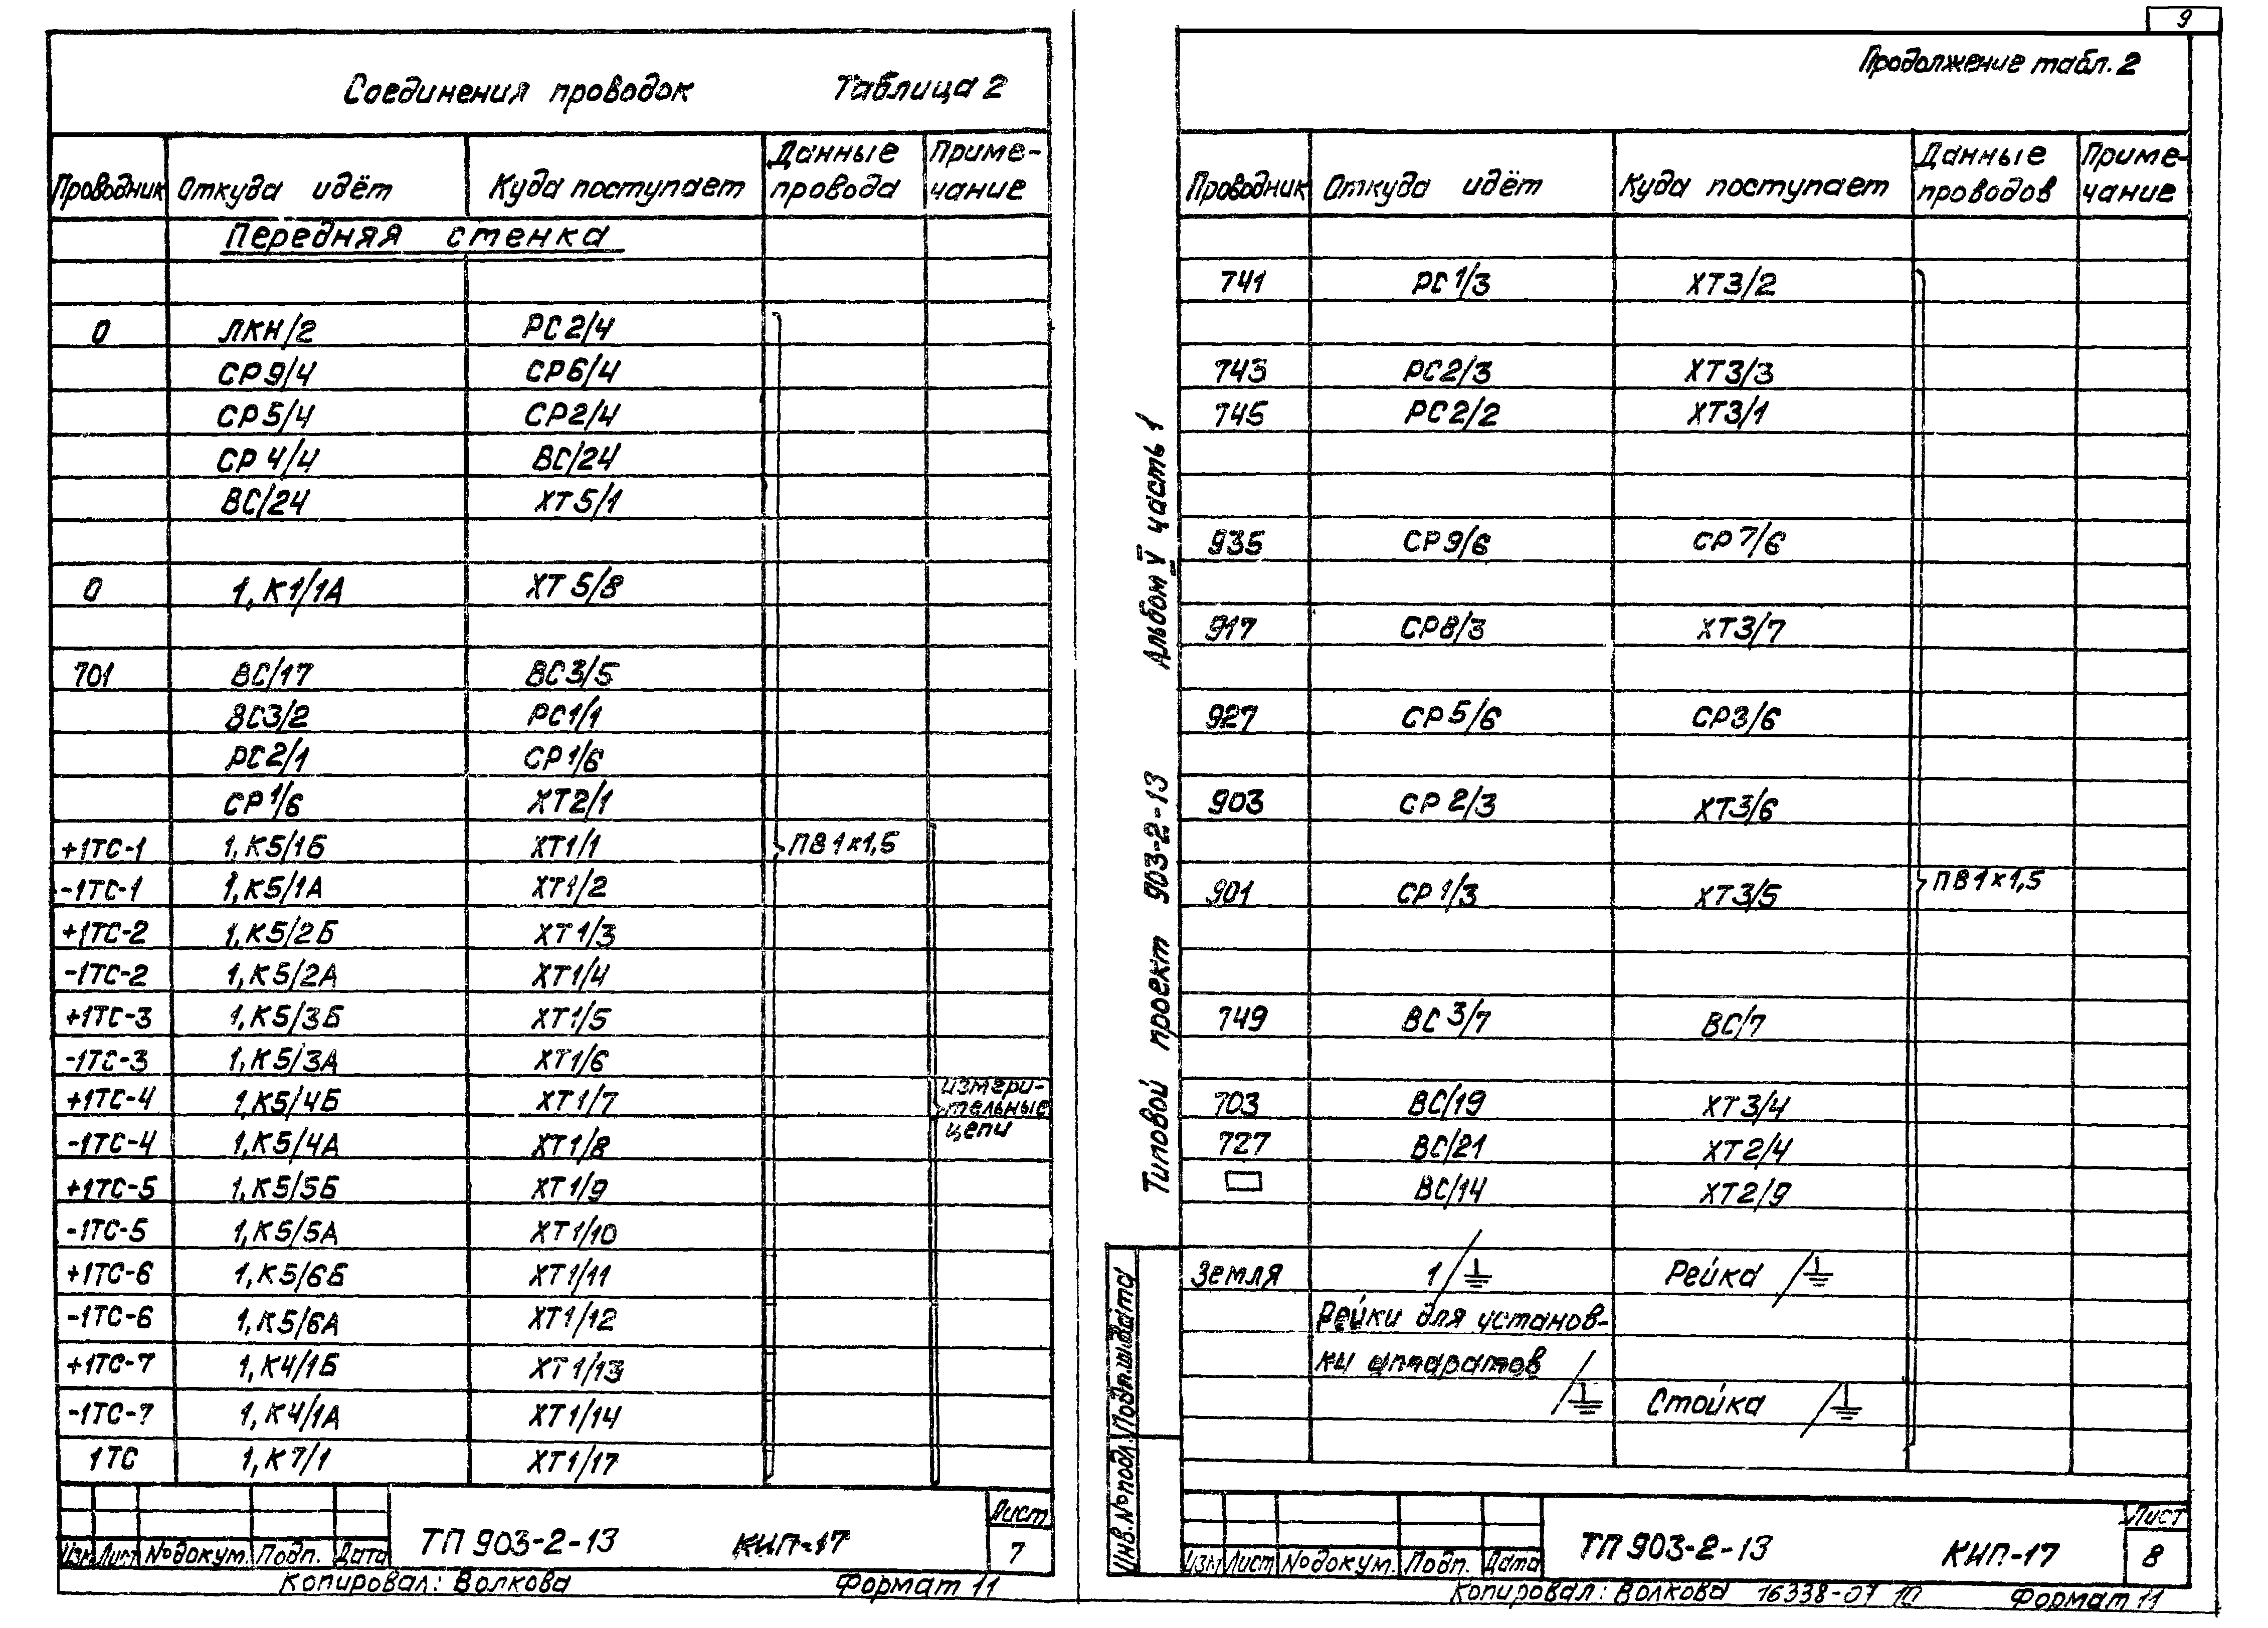 Соединения проводок Таблица 2
Проводник Откуда идёт Куда поступает Данные провода Приме-чание
Передняя стенка
0 ЛКН/2 РС2/4
СР9/4 СР6/4
СР5/4 СР2/4
СР4/4 ВС/24
ВС/24 ХТ5/1
0 1,К1/1А ХТ5/8
701 ВС/17 ВС3/5
ВС3/2 РС1/1
РС2/1 СР1/6
СР1/6 ХТ2/1
+1ТС-1 1,К5/1Б ХТ1/1 ПВ1×1,5
-1ТС-1 1,К5/1А ХТ1/2
+1ТС-2 1,К5/2Б ХТ1/3
-1ТС-2 1,К5/2А ХТ1/4
+1ТС-3 1,К5/3Б ХТ1/5
-1ТС-3 1,К5/3А ХТ1/6
+1ТС-4 1,К5/4Б ХТ1/7 измери-
тельные
-1ТС-4 1,К5/4А ХТ1/8 цепи
+1ТС-5 1,К5/5Б ХТ1/9
-1ТС-5 1,К5/5А ХТ1/10
+1ТС-6 1,К5/6Б ХТ1/11
-1ТС-6 1,К5/6А ХТ1/12
+1ТС-7 1,К4/1Б ХТ1/13
-1ТС-7 1,К4/1А ХТ1/14
1ТС 1,К7/1 ХТ1/17
Изм Лист №докум. Подп. Дата
ТП 903-2-13 КИП-17
Лист
7
Копировал: Волкова Формат 11
9
Продолжение табл. 2
Проводник Откуда идёт Куда поступает Данные проводов Приме-чание
741 РС1/3 ХТ3/2
743 РС2/3 ХТ3/3
745 РС2/2 ХТ3/1
935 СР9/6 СР7/6
917 СР8/3 ХТ3/7
927 СР5/6 СР3/6
903 СР2/3 ХТ3/6
901 СР1/3 ХТ3/5 ПВ1×1,5
749 ВС3/7 ВС/7
703 ВС/19 ХТ3/4
727 ВС/21 ХТ2/4
ВС/14 ХТ2/9
Земля 1/⏚ Рейка /⏚
Рейки для установ-
ки аппаратов
/⏚ Стойка /⏚
Типовой проект 903-2-13 Альбом V часть 1
Инв.№подл. Подп. и дата
Изм Лист №докум. Подп. Дата
ТП 903-2-13 КИП-17
Лист
8
Копировал: Волкова 16338-07 10 Формат 11